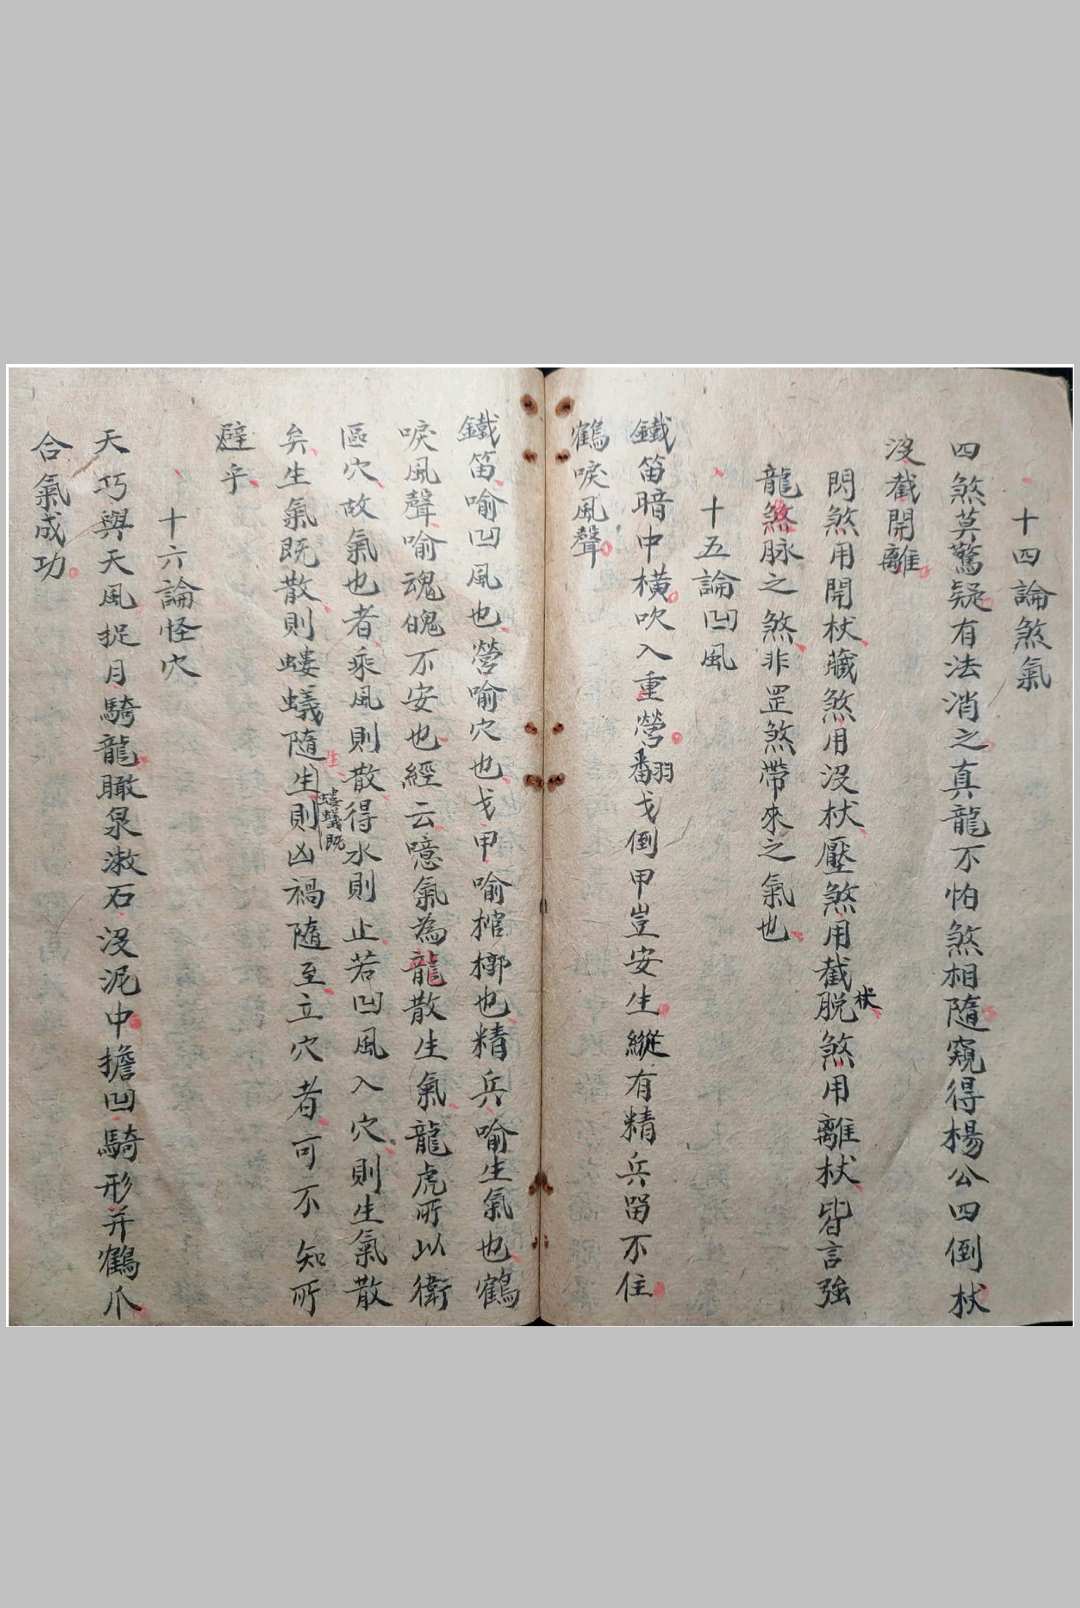 十四論煞氣
四煞莫驚疑有法消之真龍不怕煞相隨窺得楊公四倒杖
沒截開離
閃煞用開杖藏煞用沒杖壓煞用截杖脫煞用離杖皆言強
龍煞脉之煞非罡煞帶來之氣也
十五論凹風
鐵笛暗中橫吹入重營翻戈倒甲豈安生縱有精兵留不住
鶴唳風聲
鐵笛喻凹風也營喻穴也戈甲喻棺槨也精兵喻生氣也鶴
唳風聲喻魂魄不安也經云噫氣為龍散生氣龍虎所以衛
區穴故氣也者乘風則散得水則止若凹風入穴則生氣散
矣生氣既散則螻蟻隨生螻蟻既生則凶禍隨至立穴者可不知所
避乎
十六論怪穴
天巧與天風捉月騎龍瞰泉漱石沒泥中擔凹騎形并鶴爪
合氣成功